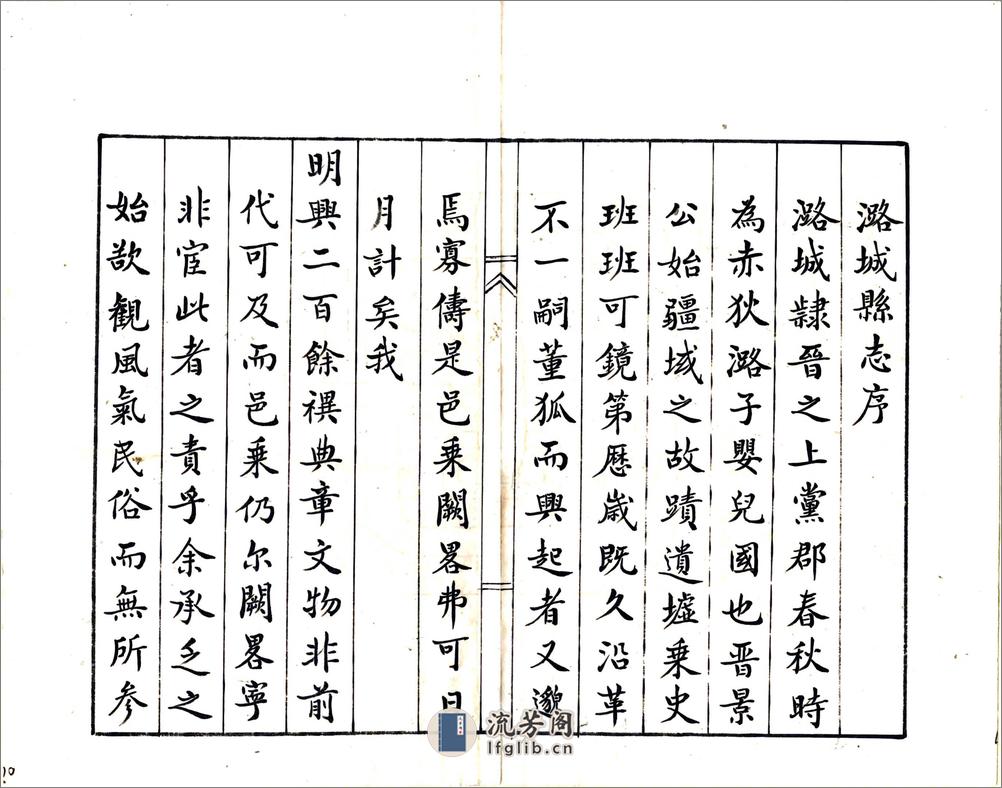 潞城縣志序
潞城隸晉之上黨郡春秋時
為赤狄潞子嬰兒國也晋景
公始疆域之故蹟遺墟乗史
班班可鏡第歴歳既久沿革
不一嗣董狐而興起者又邈
焉寡儔是邑乗闕畧弗可日
月計矣我
明興二百餘禩典章文物非前
代可及而邑乗仍尔闕畧寧
非宦此者之責乎余承乏之
始欲観風氣民俗而無所参
流芳阁
lfglib.cn